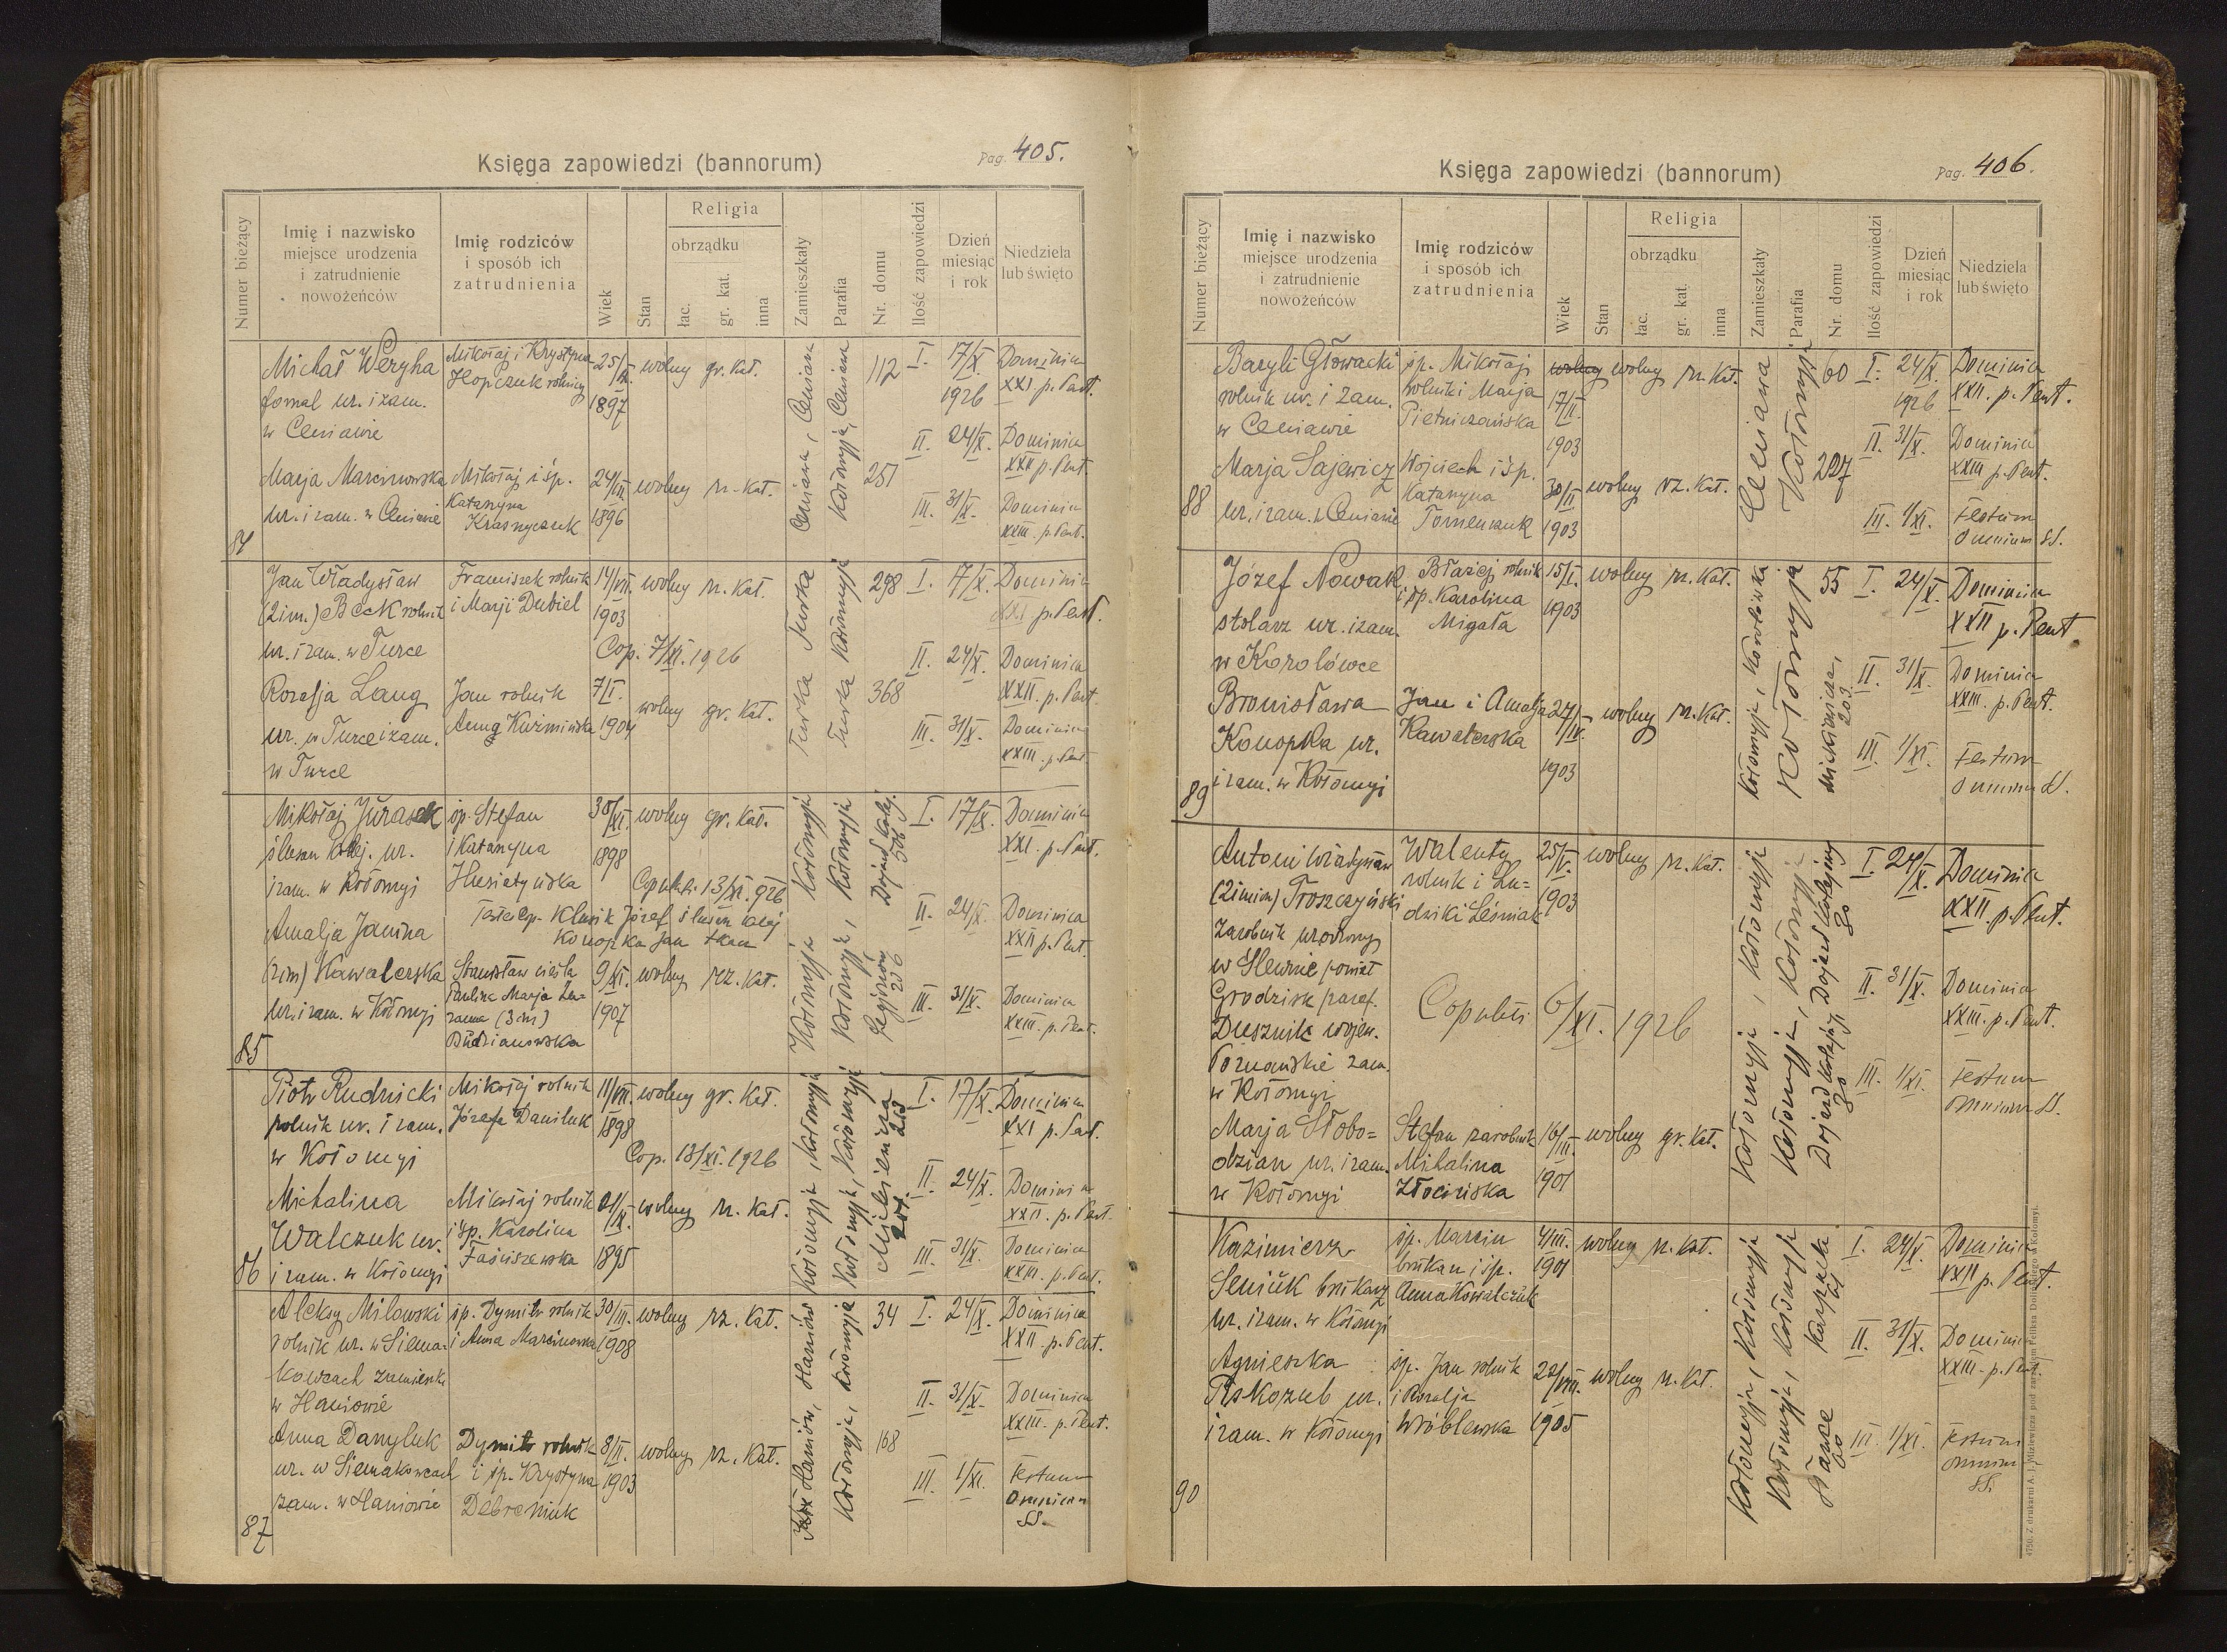 Księga zapowiedzi (bannorum)
Pag. 405.
Numer bieżący
Imię i nazwisko
miejsce urodzenia
i zatrudnienie
nowożeńców
Imię rodziców
i sposób ich
zatrudnienia
Wiek
Stan
Religia
obrządku
łac.
gr. kat.
inna
Zamieszkały
Parafia
Nr. domu
Ilość zapowiedzi
Dzień
miesiąc
i rok
Niedziela
lub święto
Michał Weryha
fornal ur. i zam.
w Ceniawie
Mikołaj i Krystyna
Hopczuk rolnicy
1897
wolny gr. kat.
112
I. 17/X. 1926 Dominica XXI p. Pent.
II. 24/X. Dominica XXII p. Pent.
III. 31/X. Dominica XXIII p. Pent.
Marja Marcinowska
ur. i zam. w Ceniawie
Mikołaj i śp.
Katarzyna
Krasnyczuk
24/VII. 1896
wolny rz. kat.
251
Ceniawa, Ceniawa
Kołomyja, Ceniawa
Jan Władysław
(2 im.) Beck rolnik
ur. i zam. w Turce
Franciszek rolnik
i Marji Dubiel
14/VII. 1903
wolny rz. kat.
298
I. 17/X. Dominica XXI p. Pent.
Cop. 7/XI. 1926
II. 24/X. Dominica XXII. p. Pent.
Rozalja Lang
ur. w Turce i zam.
w Turce
Jan rolnik
Anna Kuźmińska
7/I. 1904
wolny gr. kat.
368
III. 31/X. Dominica XXIII. p. Pent.
Turka Turka
Turka Kołomyja
85
Mikołaj Jurasek
ślusarz kolej. ur.
i zam. w Kołomyi
śp. Stefan
i Katarzyna
Husiatyńska
30/XI. 1898
wolny gr. kat.
I. 17/X. Dominica XXI. p. Pent.
Copulati 13/XI. 926
Testes Cop. Klusik Józef ślusarz kolej
Konopka Jan tkacz
II. 24/X. Dominica XXII p. Pent.
Amalja Janina
(2 im) Kawalerska
ur. i zam. w Kołomyi
Stanisław cieśla
Paulina Marja
(3 im)
9/XI. 1907
wolny rz. kat.
III. 31/X. Dominica XXIII. p. Pent.
Kołomyja Kołomyja
Kołomyja, Kołomyja
Legjonów 206
Dojazd kolej. 506
86
Piotr Rudnicki
rolnik ur. i zam.
w Kołomyi
Mikołaj rolnik
Józefa Daniluk
11/VII. 1898
wolny gr. kat.
Cop. 13/XI. 1926
I. 17/X. Dominica XXI p. Pent.
II. 24/X. Dominica XXII. p. Pent.
Michalina
Walczuk ur.
i zam. w Kołomyi
Mikołaj rolnik
i śp. Karolina
1895
wolny rz. kat.
III. 31/X. Dominica XXIII. p. Pent.
Kołomyja, Kołomyja
Kołomyja, Kołomyja
87
Aleksy Milowski
rolnik ur. w Siema-
kowcach zamieszk.
w Haniowie
śp. Dymitr rolnik
i Anna Marcinowska
30/III. 1908
wolny rz. kat.
34
I. 24/X. Dominica XXII. p. Pent.
II. 31/X. Dominica XXIII. p. Pent.
Anna Danyluk
ur. w Siemakowcach
zam. w Haniowie
Dymitr rolnik
i śp. Krystyna
Debreniuk
8/II. 1903
wolny rz. kat.
168
III. 1/XI. Festum Omnium SS.
Haniów, Haniów
Kołomyja, Kołomyja
Księga zapowiedzi (bannorum)
Pag. 406.
Numer bieżący
Imię i nazwisko
miejsce urodzenia
i zatrudnienie
nowożeńców
Imię rodziców
i sposób ich
zatrudnienia
Wiek
Stan
Religia
obrządku
łac.
gr. kat.
inna
Zamieszkały
Parafia
Nr. domu
Ilość zapowiedzi
Dzień
miesiąc
i rok
Niedziela
lub święto
88
Bazyli Głowacki
rolnik ur. i zam.
w Ceniawie
śp. Mikołaj
rolnik i Marja
Pietniczańska
17/II. 1903
wolny wolny rz. kat.
60
I. 24/X. 1926 Dominica XXII. p. Pent.
II. 31/X. Dominica XXIII p. Pent.
Marja Sajewicz
ur. i zam. w Ceniawie
Wojciech i śp.
Katarzyna
Tomenczuk
30/II. 1903
wolny rz. kat.
227
III. 1/XI. Festum Omnium SS.
Ceniawa
Kołomyja
89
Józef Nowak
stolarz ur. i zam.
w Korolówce
Błażej rolnik
i śp. Karolina
Migała
15/I. 1903
wolny rz. kat.
55
I. 24/X. Dominica XXII p. Pent.
II. 31/X. Dominica XXIII. p. Pent.
Bronisława
Konopka ur.
i zam. w Kołomyi
Jan i Amalja
Kawalerska
27/IV. 1903
wolny rz. kat.
III. 1/XI. Festum Omnium SS.
Kołomyja, Korolówka
Kołomyja
Mickiewicza, 203
Antoni Władysław
(2 imion) Troszczyński
zarobnik urodzony
w powiat
Grodzisk paraf.
Duszniki wojew.
Poznańskie zam.
w Kołomyi
Walenty
rolnik i Lu=
dwika Leśniak
25/V. 1903
wolny rz. kat.
I. 24/X. Dominica XXII. p. Pent.
Copulati 6/XI. 1926
II. 31/X. Dominica XXIII. p. Pent.
III. 1/XI. Festum Omnium SS.
Marja Słobo=
dzian ur. i zam.
w Kołomyi
Stefan zarobnik
Michalina
Złocińska
16/III. 1901
wolny gr. kat.
Kołomyja, Kołomyja
Kołomyja, Kołomyja
Dojazd kolejowy 30
Dojazd kolejowy 30
90
Kazimierz
Seničuk brukarz
ur. i zam. w Kołomyi
śp. Marcin
brukarz i śp.
Anna Kowalczuk
4/III. 1901
wolny rz. kat.
I. 24/X. Dominica XXII p. Pent.
II. 31/X. Dominica XXIII. p. Pent.
Agnieszka
Piskozub ur.
i zam. w Kołomyi
śp. Jan rolnik
i Rozalja
Wróblewska
22/VIII. 1905
wolny rz. kat.
III. 1/XI. Festum Omnium SS.
Kołomyja, Kołomyja
Kołomyja, Kołomyja